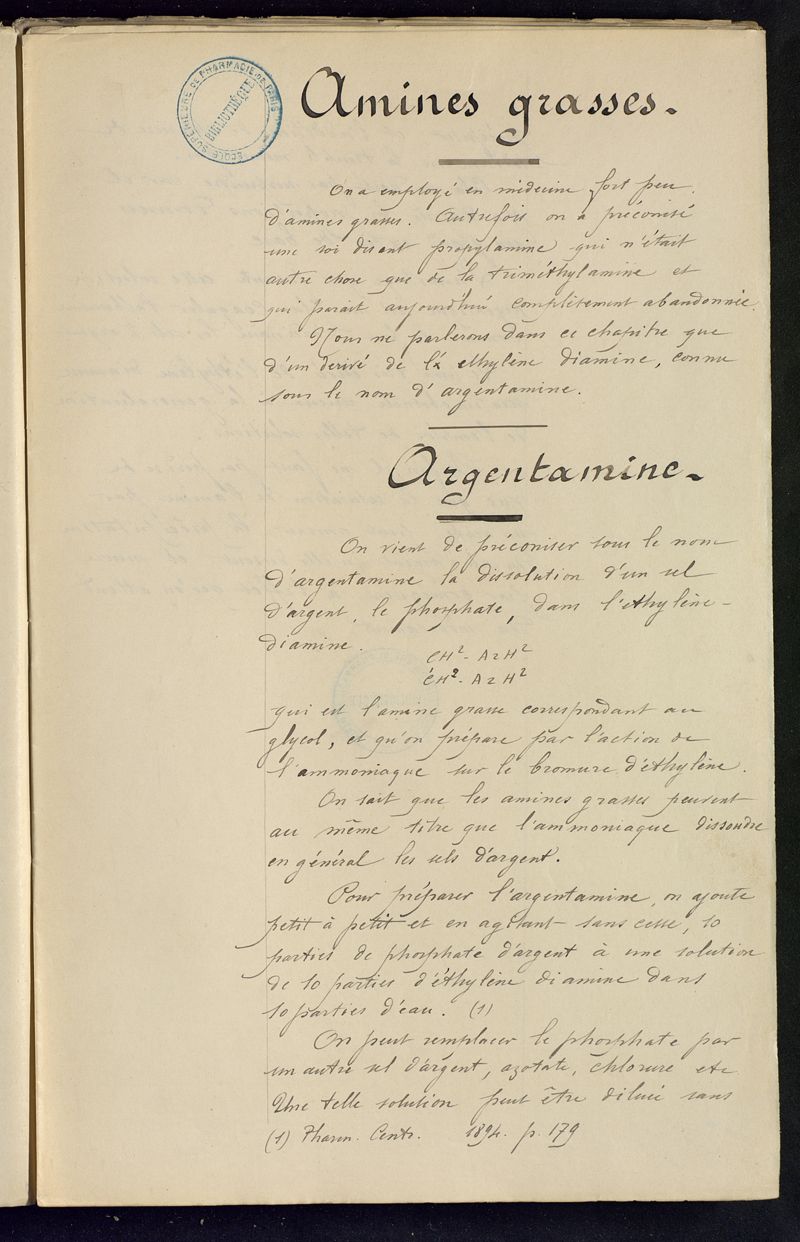 ÉCOLE SUPÉRIEURE DE PHARMACIE DE PARIS
BIBLIOTHÈQUE
Amines grasses.
On a employé en médecine fort peu
d'amines grasses. Autrefois on a préconisé
une soi disant propylamine qui n'était
autre chose que de la triméthylamine et
qui parait aujourd'hui complètement abandonnée.
Nous ne parlerons dans ce chapitre que
d'un derivé de l'éthylène diamine, connu
sous le nom d'argentamine.
Argentamine.
On vient de préconiser sous le nom
d'argentamine la dissolution d'un sel
d'argent, le phosphate, dans l'ethylène-
diamine.
CH² - AzH²
CH² - AzH²
qui est l'amine grasse correspondant au
glycol, et qu'on prépare par l'action de
l'ammoniaque sur le bromure d'éthylène.
On sait que les amines grasses peuvent
au même titre que l'ammoniaque dissoudre
en général les sels d'argent.
Pour préparer l'argentamine, on ajoute
petit à petit et en agitant sans cesse, 10
parties de phosphate d'argent à une solution
de 10 parties d'éthylène diamine dans
10 parties d'eau. (1)
On peut remplacer le phosphate par
un autre sel d'argent, azotate, chlorure etc
Une telle solution peut être diluée sans
(1) Pharm. Centr. 1894. p. 179